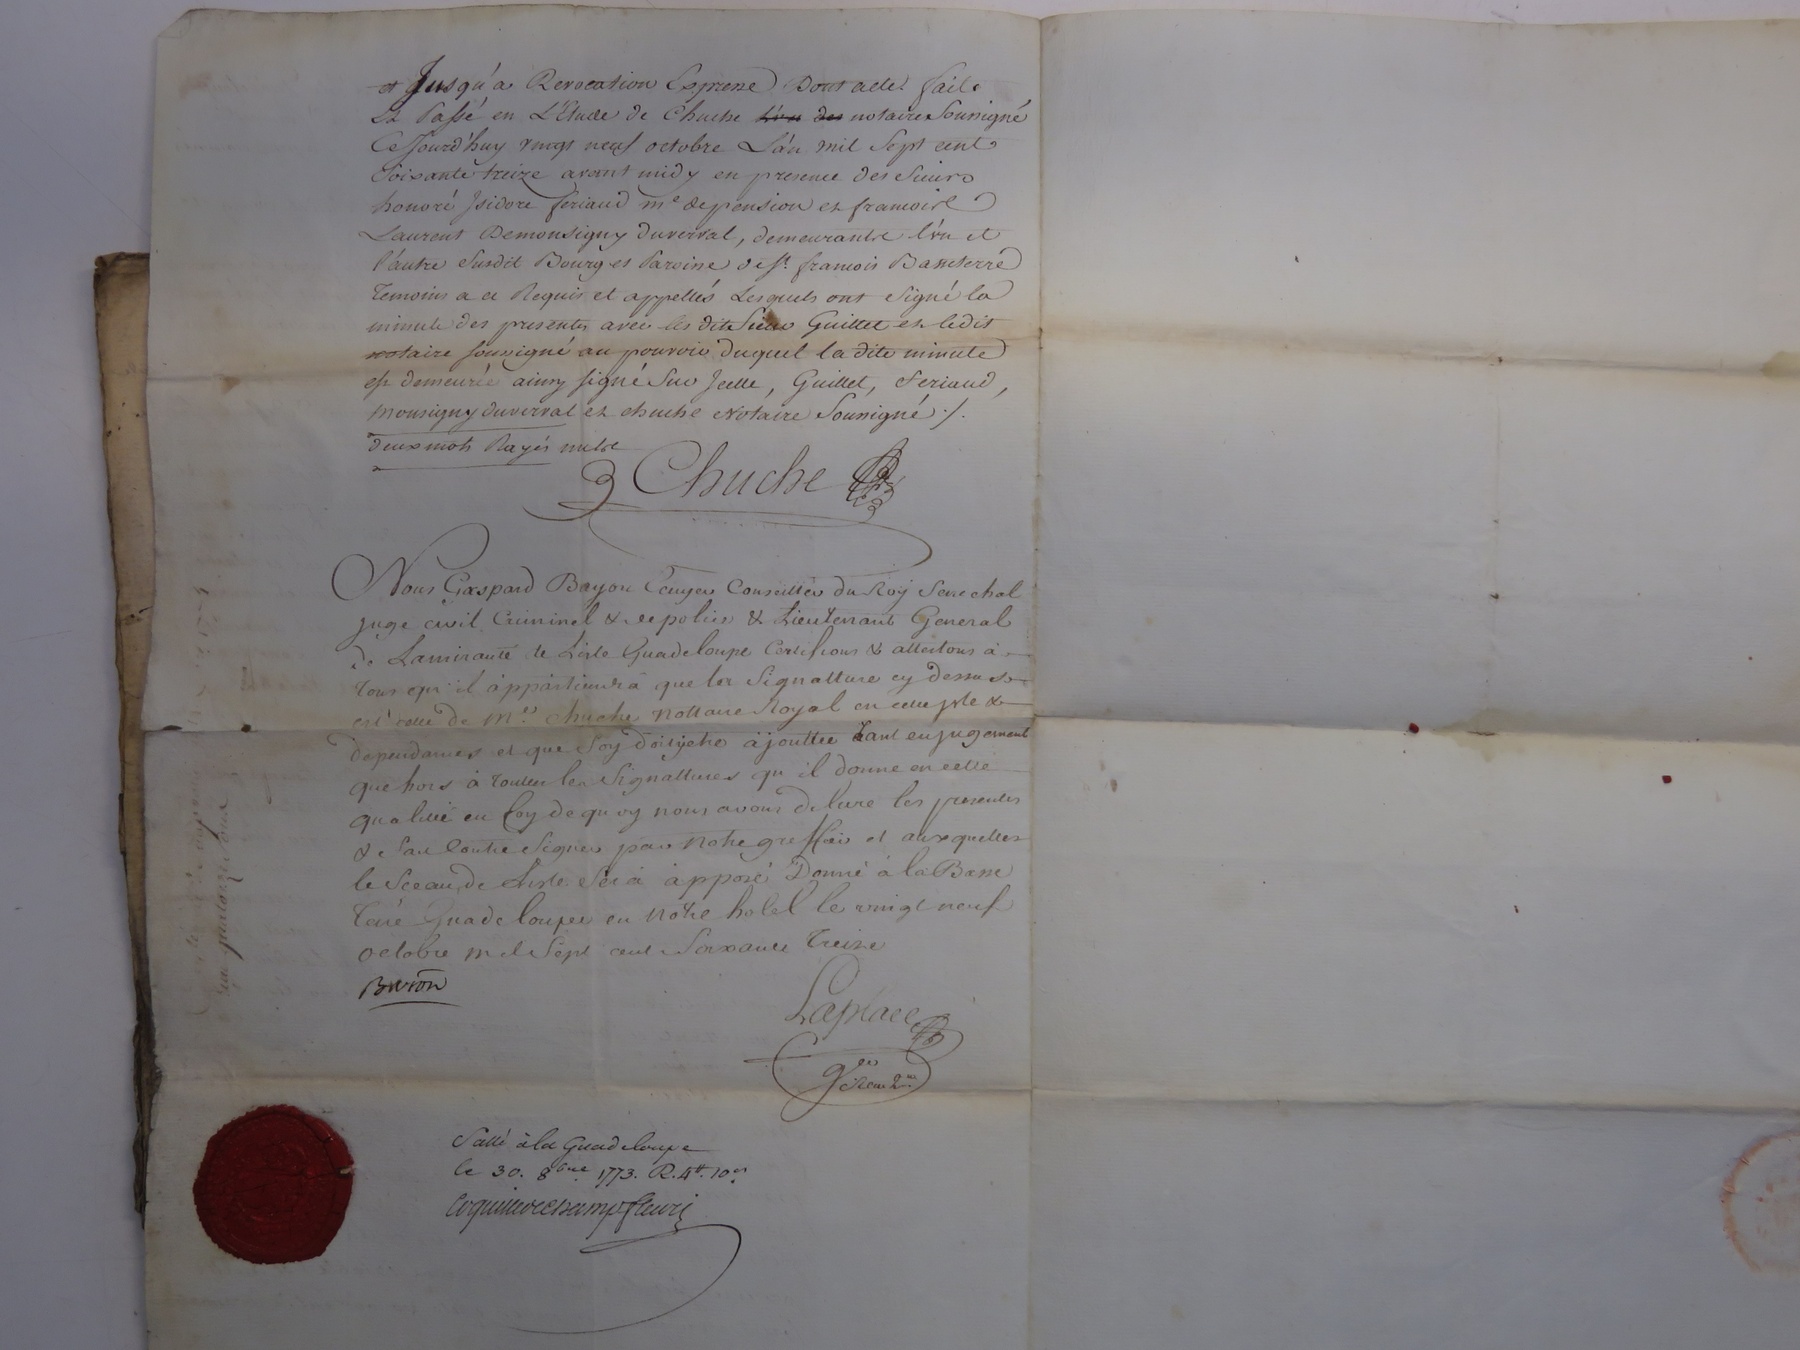 et Jusqu'a Revocation Expresse Dont acte! fait
Et Passé en L'Etude de Chuche l'un des notaire Soussigné
Cejourd'huy vingt neuf octobre L'an mil Sept cent
Soixante treize avant midy en presence des Sieurs
honoré Isidore feriaud me de pension et francois
Laurent Demonsigny duverval, demeurants l'un et
l'autre Susdit Bourg et Paroisse de St. francois Basseterre
Temoins a ce Requis et appellés Lesquels ont Signé la
minute des presentes avec les dits Sieur Guillet et ledit
notaire soussigné au pouvoir duquel la dite minute
est demeurée ainsy signé Sur Icelle, Guillet, feriaud,
Monsigny duverval et chuche Notaire Soussigné ./.
deux mots Rayés nuls
Chuche
Nous Gaspard Bayon Ecuyer Conseiller du Roy Senechal
juge civil Criminel & de police & Lieutenant General
de Lamirauté de Lisle Guadeloupe Certifions & attestons à
tous qu'il appartiendra que les Signatture cy dessus
est celle de Me. Chuche Nottaire Royal en cette isle &
dependances et que foy doit etre ajouttée tant en jugement
que hors à toutes les Signattures qu'il donne en cette
qualité en foy de quoy nous avons delivré les presentes
& fait Contre Signer par notre greffier et auxquelles
le Sceau de Lisle Sera apposé Donné à la Basse
terre Guadeloupe en notre hotel le vingt neuf
octobre mil Sept cent Soixante treize
Laplace
Sellé à la Guadeloupe
le 30. 8bre 1773. R. 4tt. 10s